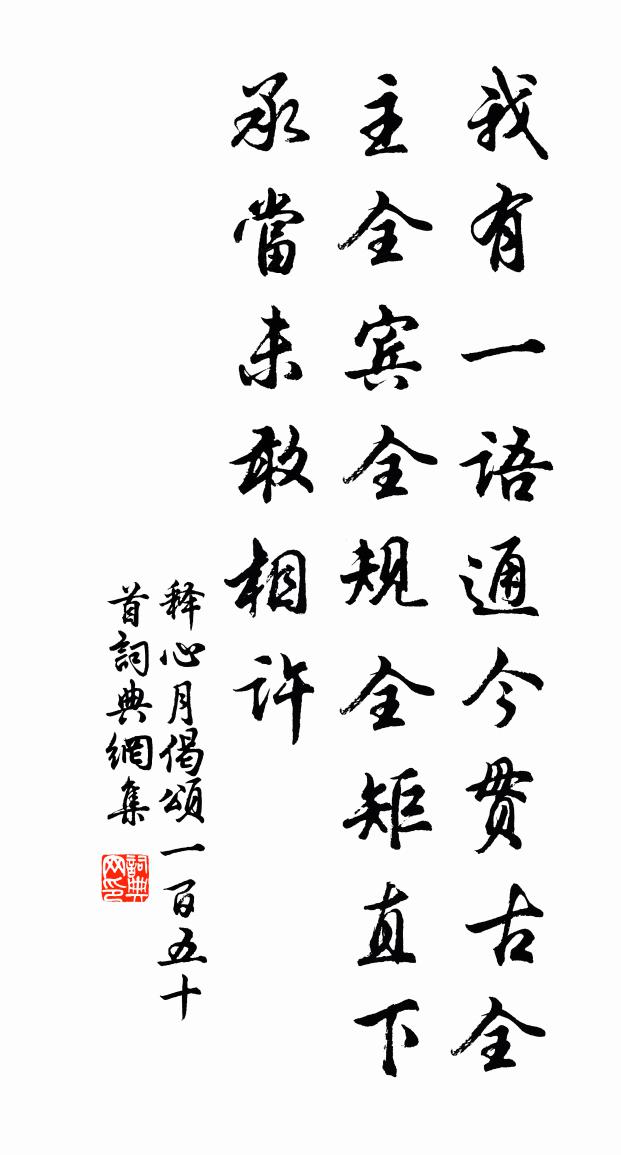 我有一语通今贯古全
主全宾全规全矩直下
承當未敢相许
释心月偈颂一百五十
首詞典網集
詞典网印